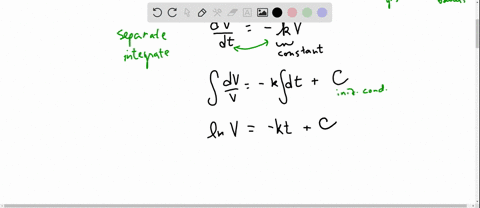 separate
integrate
dV/dt = -kV
constant
∫ dV/V = -k∫dt + C
init. cond.
ln V = -kt + C